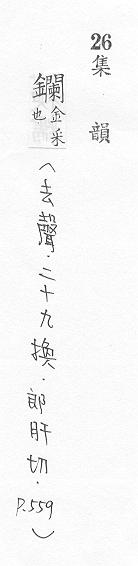 26集韻
鑭金采也（去聲．二十九換．郎肝切．P.559）